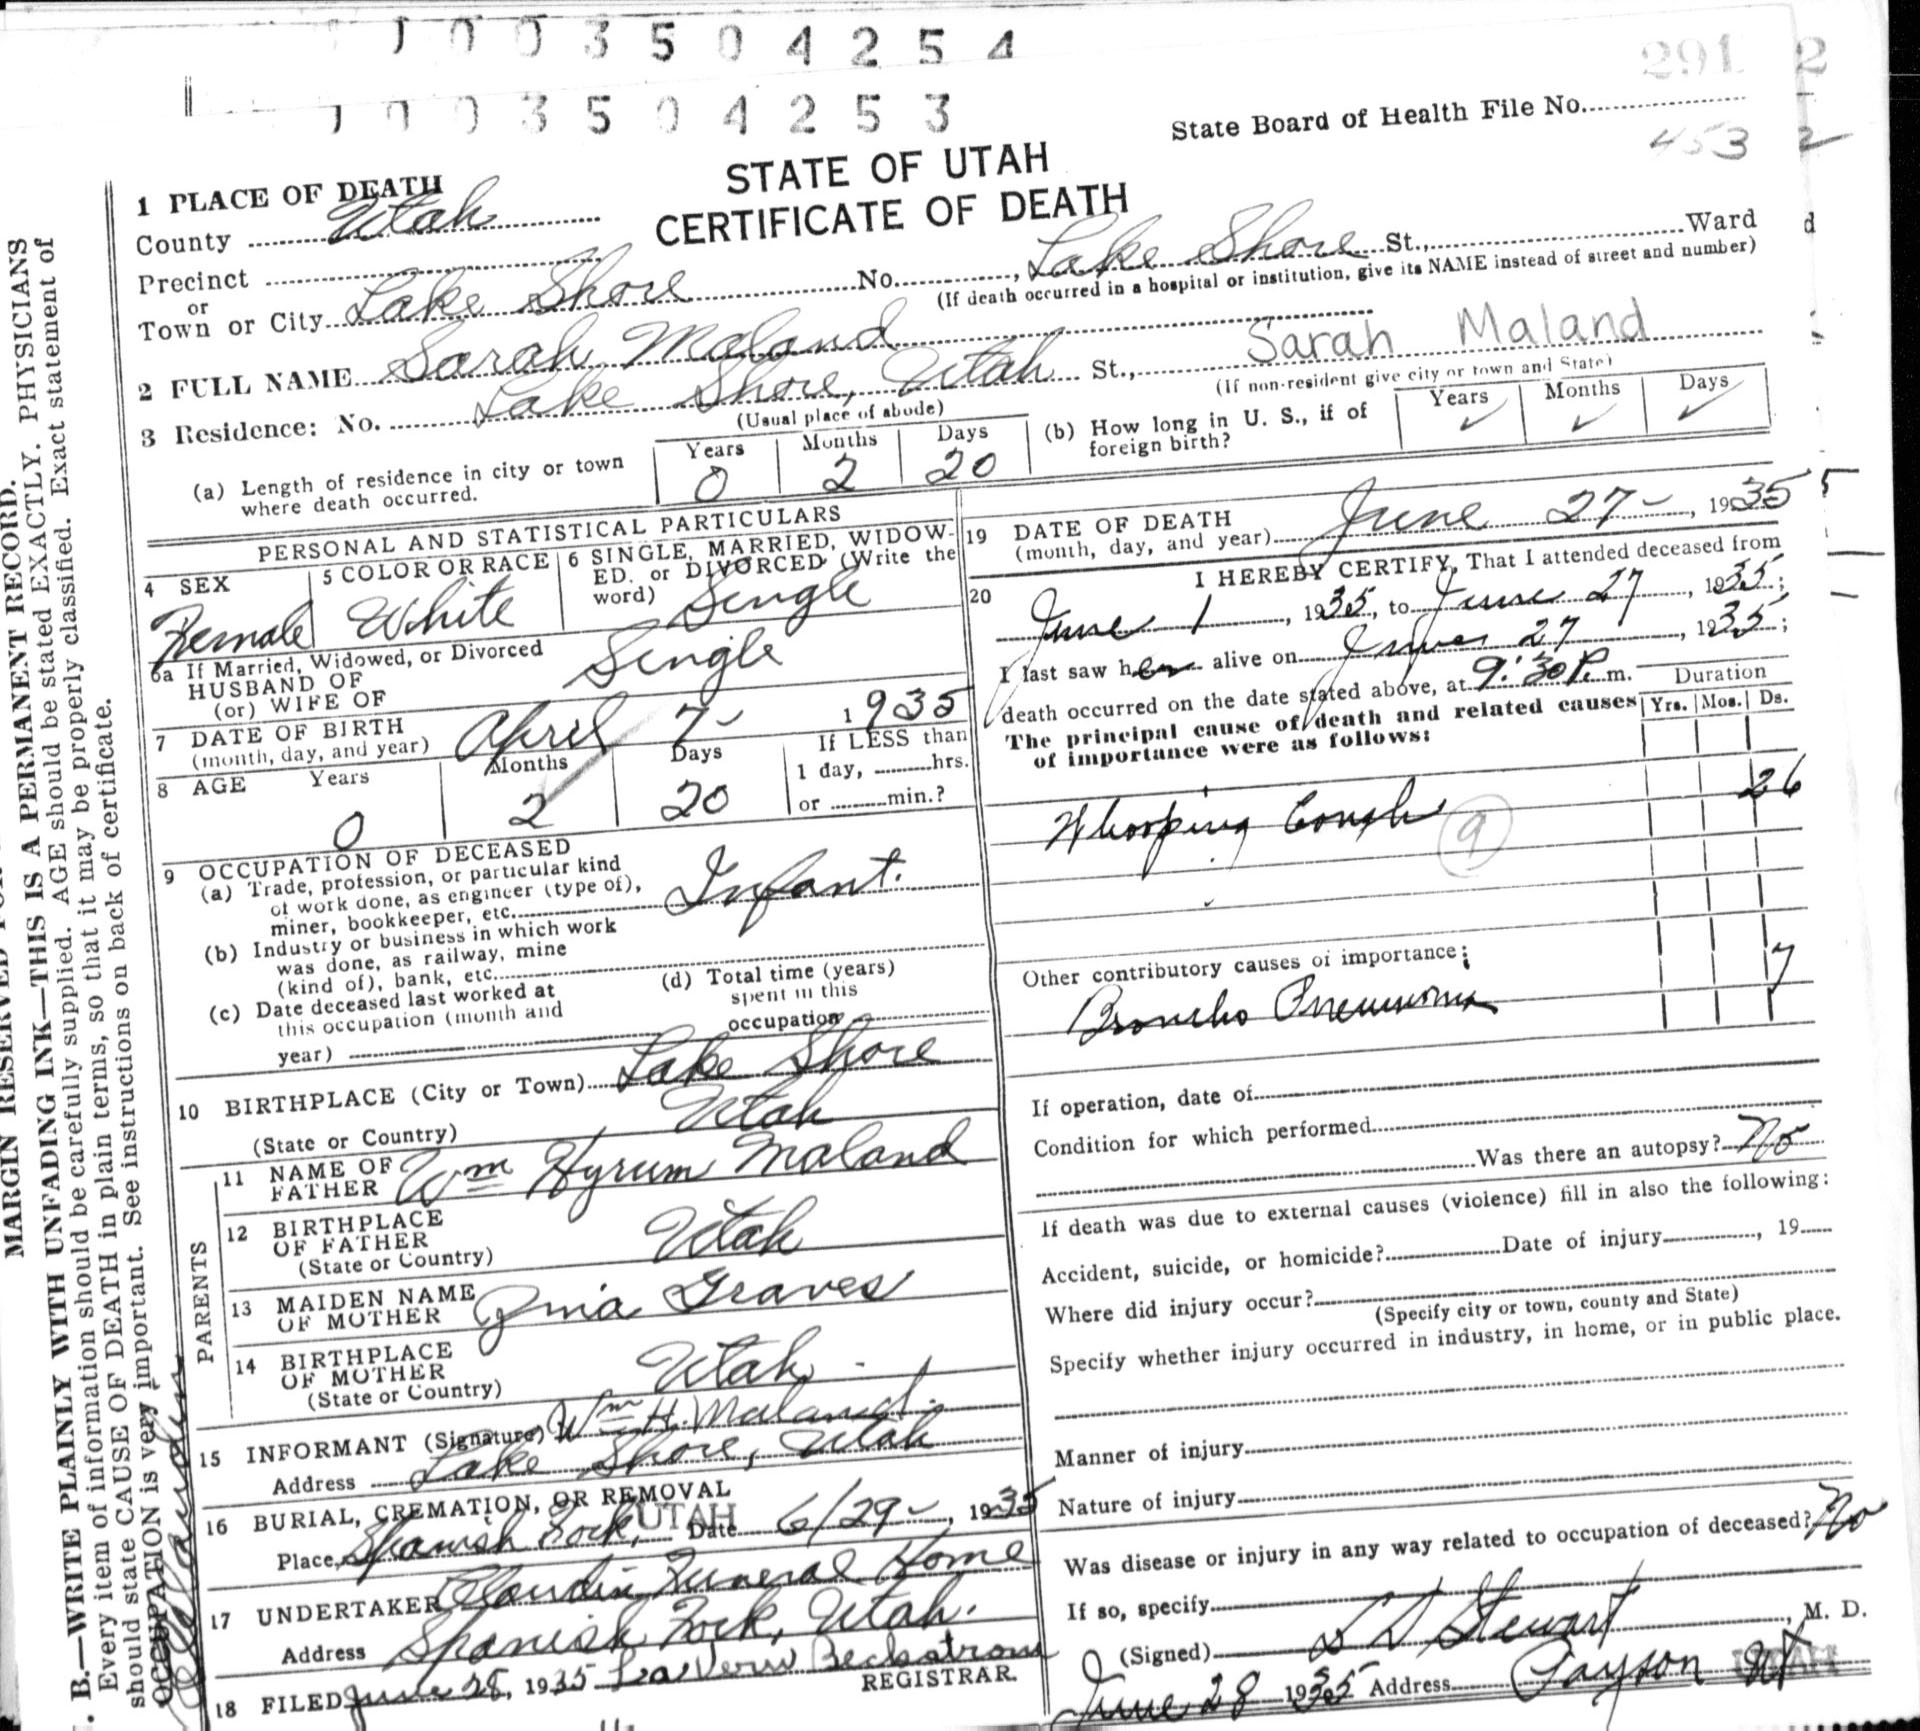 1 0 0 3 5 0 4 2 5 4
1 0 0 3 5 0 4 2 5 3
291 2
State Board of Health File No.
453 2
STATE OF UTAH
CERTIFICATE OF DEATH
1 PLACE OF DEATH
County Utah
Precinct
or
Town or City Lake Shore No. , Lake Shore St., Ward
(If death occurred in a hospital or institution, give its NAME instead of street and number)
2 FULL NAME Sarah Maland Sarah Maland
3 Residence: No. Lake Shore, Utah St.,
(Usual place of abode) (If non-resident give city or town and State)
(a) Length of residence in city or town where death occurred. Years 0 Months 2 Days 20
(b) How long in U. S., if of foreign birth? Years ✓ Months ✓ Days ✓
PERSONAL AND STATISTICAL PARTICULARS
4 SEX Female
5 COLOR OR RACE White
6 SINGLE, MARRIED, WIDOW-
ED. or DIVORCED (Write the
word) Single
6a If Married, Widowed, or Divorced
HUSBAND OF
(or) WIFE OF Single
7 DATE OF BIRTH
(month, day, and year) April 7- 1935
8 AGE Years 0 Months 2 Days 20
If LESS than
1 day, hrs.
or min.?
9 OCCUPATION OF DECEASED
(a) Trade, profession, or particular kind
of work done, as engineer (type of),
miner, bookkeeper, etc. Infant.
(b) Industry or business in which work
was done, as railway, mine
(kind of), bank, etc.
(c) Date deceased last worked at
this occupation (month and
year)
(d) Total time (years)
spent in this
occupation
10 BIRTHPLACE (City or Town) Lake Shore
(State or Country) Utah
PARENTS
11 NAME OF
FATHER Wm Hyrum Maland
12 BIRTHPLACE
OF FATHER
(State or Country) Utah
13 MAIDEN NAME
OF MOTHER Zina Graves
14 BIRTHPLACE
OF MOTHER
(State or Country) Utah
15 INFORMANT (Signature) Wm H. Maland.
Address Lake Shore, Utah
16 BURIAL, CREMATION, OR REMOVAL
Place, Spanish Fork, UTAH Date 6/29-, 1935
17 UNDERTAKER Claudin Funeral Home
Address Spanish Fork, Utah.
18 FILED June 28, 1935 LaVern Beckstrom
REGISTRAR.
19 DATE OF DEATH
(month, day, and year) June 27-, 1935
20 I HEREBY CERTIFY, That I attended deceased from
June 1, 1935, to June 27, 1935;
I last saw her alive on June 27, 1935;
death occurred on the date stated above, at 9:30 P. m.
The principal cause of death and related causes
of importance were as follows:
Duration
Yrs. Mos. Ds.
Whooping Cough 9 26
Other contributory causes of importance:
Broncho Pneumonia 7
If operation, date of
Condition for which performed
Was there an autopsy? No
If death was due to external causes (violence) fill in also the following:
Accident, suicide, or homicide? Date of injury , 19
Where did injury occur?
(Specify city or town, county and State)
Specify whether injury occurred in industry, in home, or in public place.
Manner of injury
Nature of injury
Was disease or injury in any way related to occupation of deceased? No
If so, specify
(Signed) L D Stewart, M. D.
June 28 1935 Address Payson Ut UTAH
MARGIN RESERVED
B.—WRITE PLAINLY WITH UNFADING INK—THIS IS A PERMANENT RECORD.
Every item of information should be carefully supplied. AGE should be stated EXACTLY. PHYSICIANS
should state CAUSE OF DEATH in plain terms, so that it may be properly classified. Exact statement of
OCCUPATION is very important. See instructions on back of certificate.